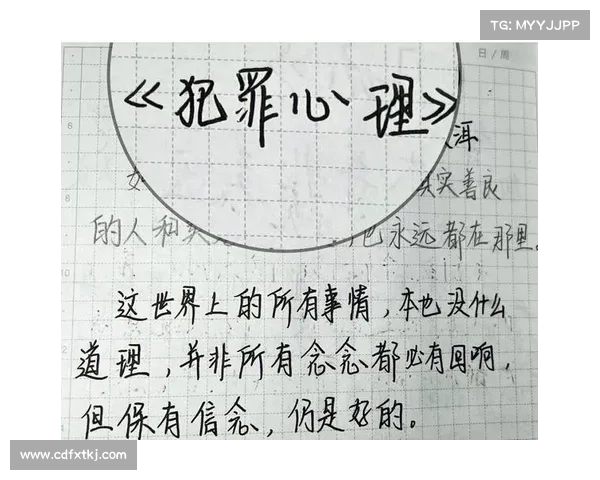 TG: MYYJJPP
日/周
《犯罪心理》
实善良
的人和 也永远都在那里。
这世界上的所有事情，本也没什么
道理，并非所有念念都必有回响，
但保有信念，仍是好的。
www.cdfxtkj.com